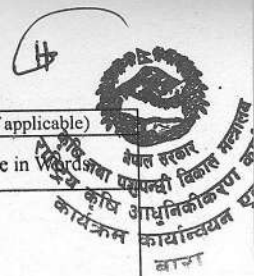 applicable)
e in Words
नेपाल सरकार
कृषि तथा पशुपन्छी विकास मन्त्रालय
कृषि आधुनिकीकरण
कार्यक्रम कार्यान्वयन
बारा